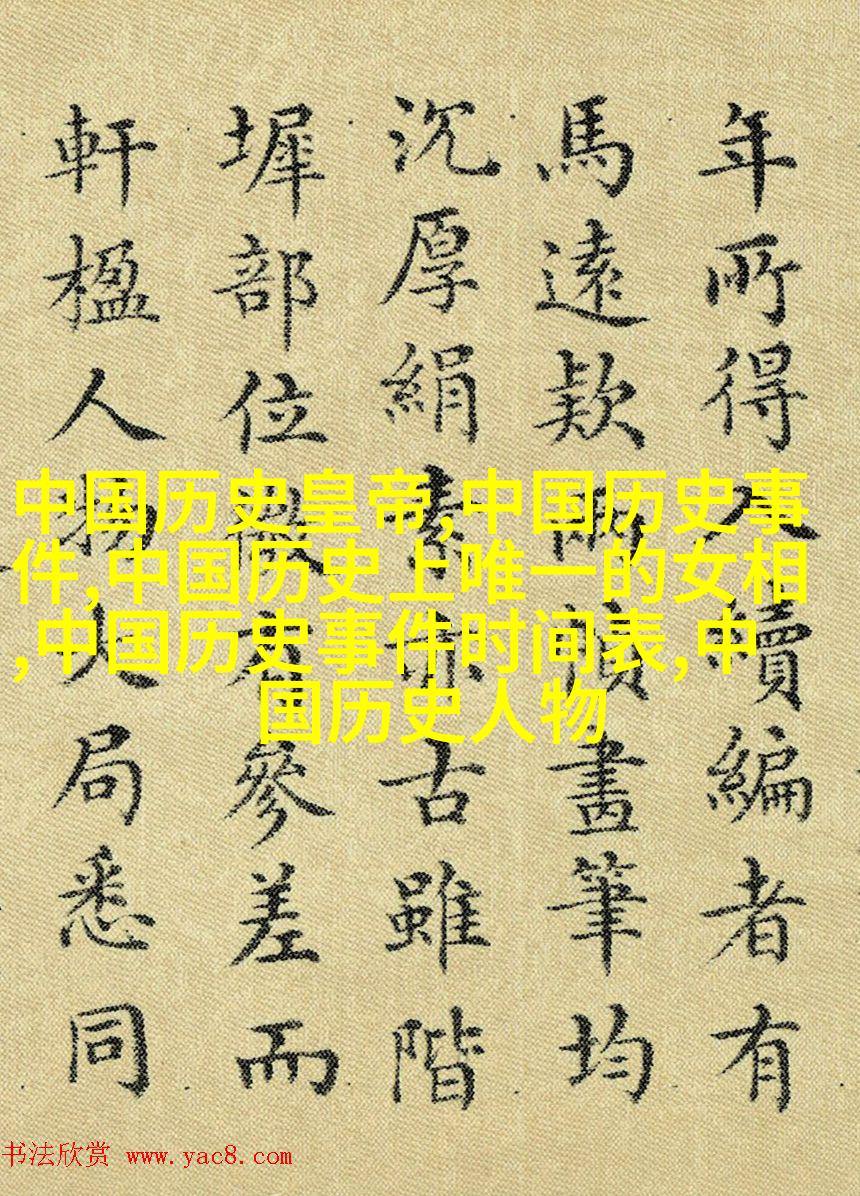 年所得入續編者有
馬遠款兩幀畫筆均
沉厚絹素亦古雖階
墀部位微有參差而
軒楹人物大局悉同
中国历史皇帝,中国历史事
件,中国历史上唯一的女相
,中国历史事件时间表,中
国历史人物
书法欣赏 www.yac8.com